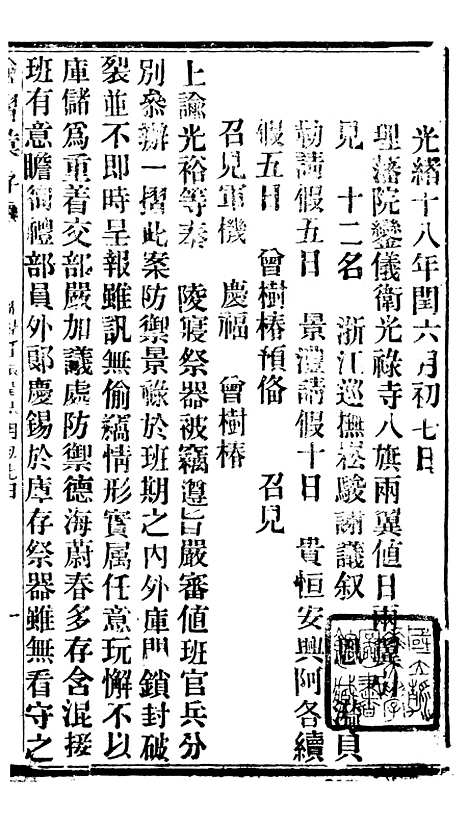 光緒十八年閏六月初七日
理藩院鑾儀衛光祿寺八旗兩翼值日兩翼引
見 十二名 浙江巡撫崧駿謝議叙 恩 貝
勒請假五日 景澧請假十日 貴恒安興阿各續
假五日 曾樹椿預備 召見
召見軍機 慶福 曾樹椿
上諭光裕等奏 陵寢祭器被竊遵旨嚴審值班官兵分
別叅辦一摺此案防禦景祿於班期之內外庫門鎖封破
裂並不即時呈報雖訊無偷竊情形實属任意玩懈不以
庫儲爲重着交部嚴加議處防禦德海蔚春多存含混接
班有意瞻徇禮部員外郎慶錫於庫存祭器雖無看守之